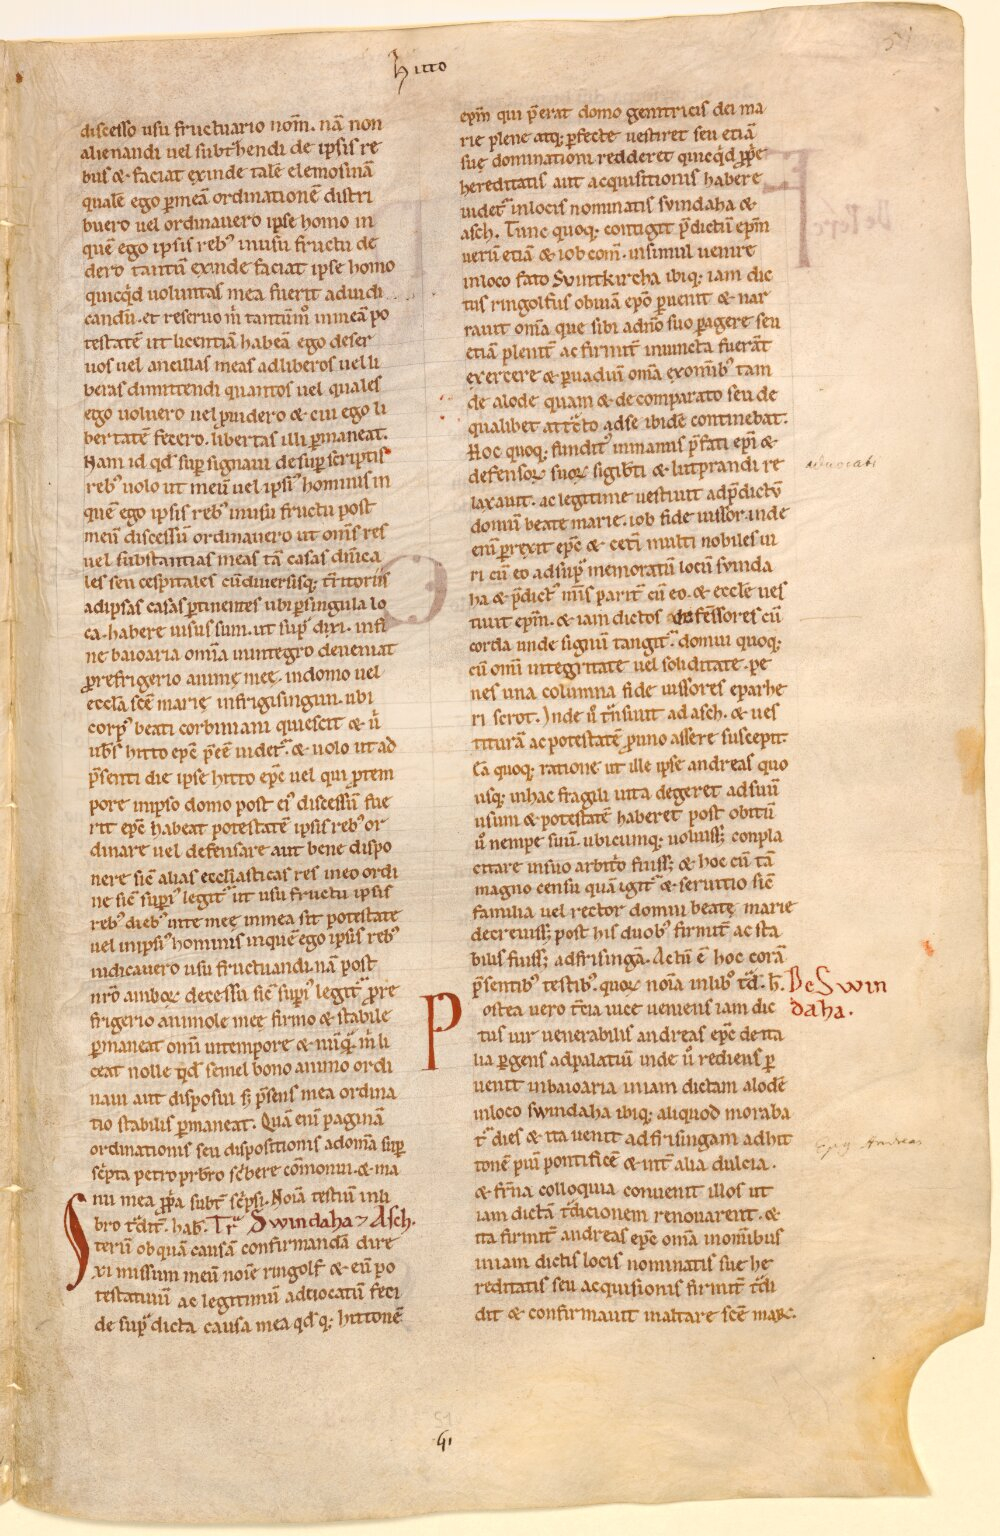 hitto
discesso usu fructuario nom̄. nā non
alienandi uel subt̄hendi de ipsis re
bus & faciat exinde talē elemosinā
qualē ego ꝑmeā ordinationē distri
buero uel ordinauero ipse homo in
quē ego ipsis rebꝰ inusu fructu de
dero tantū exinde faciat ipse homo
quicq̇d uoluntas mea fuerit adiudi
candū. et reseruo m̄ tantūm̊ inmeā po
testatē ut licentiā habeā ego deser
uos uel ancillas meas adliberos uel li
beras dimittendi quantos uel quales
ego uoluero uel puidero & cui ego li
bertatē fecero. libertas illi ꝑmaneat.
Nam id qd̄ suꝑ signaui desuꝑ scriptis
rebꝰ uolo ut meū uel ipsiꝰ hominis in
quē ego ipsis rebꝰ inusu fructu post
meū discessū ordinauero ut om̄s res
uel substantias meas tā casas dn̄ica
les seu cespitales cū diuersisq; t̄ritoriis
adipsas casas ꝑtinentes ubi ꝑsingula lo
ca. habere uisus sum. ut supͣ dixi. infi
ne baioaria omīa inintegro deueniat
ꝓrefrigerio animę meę. indomo uel
eccl̄a sc̄e marię infrigisingun. ubi
corpꝰ beati corbiniani quiescit & ů
ub̄s hitto ep̄c p̄eē uidet᷑. & uolo ut ad
p̄senti die ipse hitto ep̄c uel qui ꝓtem
pore inipso domo post eiꝰ discessū fue
rit ep̄c habeat potestatē ipsis rebꝰ or
dinare uel defensare aut bene dispo
nere sic̄ alias eccl̄iasticas res ineo ordi
ne sic̄ supiꝰ legit᷑ ut usu fructu ipsis
rebꝰ diebꝰ uite meę inmea sit potestate
uel inipsiꝰ hominis inquē ego ipsis rebꝰ
iudicauero usu fructuandi. nā post
nr̄o amboꝝ decessū sic̄ supiꝰ legit᷑ ꝓre
frigerio animole mee firmo & stabile
ꝑmaneat omi intempore & nūqͣ m̄ li
ceat nolle qd̄ semel bono animo ordi
naui aut disposui s; p̄sens mea ordina
tio stabilis ꝑmaneat. Quā enī paginā
ordinationis seu dispositionis adomīa suꝑ
sc̄pta petro pr̄bro sc̄bere cōmonui. & ma
nu mea ꝓpa subt̄ sc̄psi. Noīa testiū inli
bro t̄dit̄. hab̄. Trͣ Swindaha & Asch.
Sterū obquā causā confirmandā dire
xi missum meū noīe ringolf & eū po
testatiuū ac legitimū aduocatū feci
de supͣ dicta causa mea qd̄q; hittonē
ep̄m qui p̄erat domo genitricis dei ma
rie plene atq; ꝑfecte uestiret seu etiā
suę dominationi redderet quicq̇d ꝓpe
hereditatis aut acquisitionis habere
uidet᷑ inlocis nominatis suindaha &
asch. Tunc quoq; contigit p̄dictū ep̄m
uerū etiā & iob com̄. insimul uenire
inloco fato Suintkircha ibiq; iam dic
tus ringolfus obuiā ep̄o ꝑuenit & nar
rauit omīa que sibi adn̄o suo ꝑagere seu
etiā plenit̄ ac firmit̄ iniuncta fuerāt
exercere & ꝑuadiū omīa exomibꝰ tam
de alode quam & de comparato seu de
qualibet att̄cto adse ibidē continebat.
Hoc quoq; funditꝰ inmanus p̄fati ep̄i &
defensoꝝ suoꝝ sigib̄ti & liutprandi re
laxauit. ac legitime uestiuit adp̄dictū
domū beate marie. iob fide iussor. inde
enī ꝑrexit ep̄c & ceti multi nobiles ui
ri cū eo adsupͣ memoratū locū suinda
ha & p̄dict᷑ mis̄ parit̄ cū eo. & eccl̄e ues
tiuit ep̄m. & iam dictos defessores cū
corda unde signū tangit᷑ domui quoq;
cū omi integritate uel soliditate. pe
nes una columna fide iussores eparhe
ri scrot. Inde ů t̄nsiuit ad asch. & ues
titurā ac potestatē ꝓuno assere suscepit.
Ea quoq; ratione ut ille ipse andreas quo
usq; inhac fragili uita degeret adsuū
usum & potestatē haberet post obitū
ů nempe suū. ubicumq; uoluiss; conpla
citare insuo arbit̄o fuiss; & hoc cū tā
magno censu quā igit᷑ & seruitio sic̄
familia uel rector domui beatę marie
decreuiss; post his duobꝰ firmit̄ ac sta
bilis fuiss; adfrisingā. Actū ē hoc corā
p̄sentibꝰ testibꝰ. quoꝝ noīa inlibꝰ t̄d. h̄. De Swin
daha.
Postea uero t̄cia uice ueniens iam dic
tus uir uenerabilis andreas ep̄c de ita
lia ꝑgens adpalatiū inde ů rediens ꝑ
uenit inbaioaria iniam dictam alodē
inloco swindaha ibiq; aliquod moraba
t᷑ dies & ita uenit adfrisingam adhit
tonē piū pontificē & int̄ alia dulcia.
& frn̄a colloquia conuenit illos ut
iam dictā t̄dicionem renouarent. &
ita firmit̄ andreas ep̄c omīa inomibus
iniam dictis locis nominatis sue he
reditatis seu acquisionis firmit̄ t̄di
dit & confirmauit inaltare sc̄e marię.
aduocati
Ep̄ꝰ Andreas
51